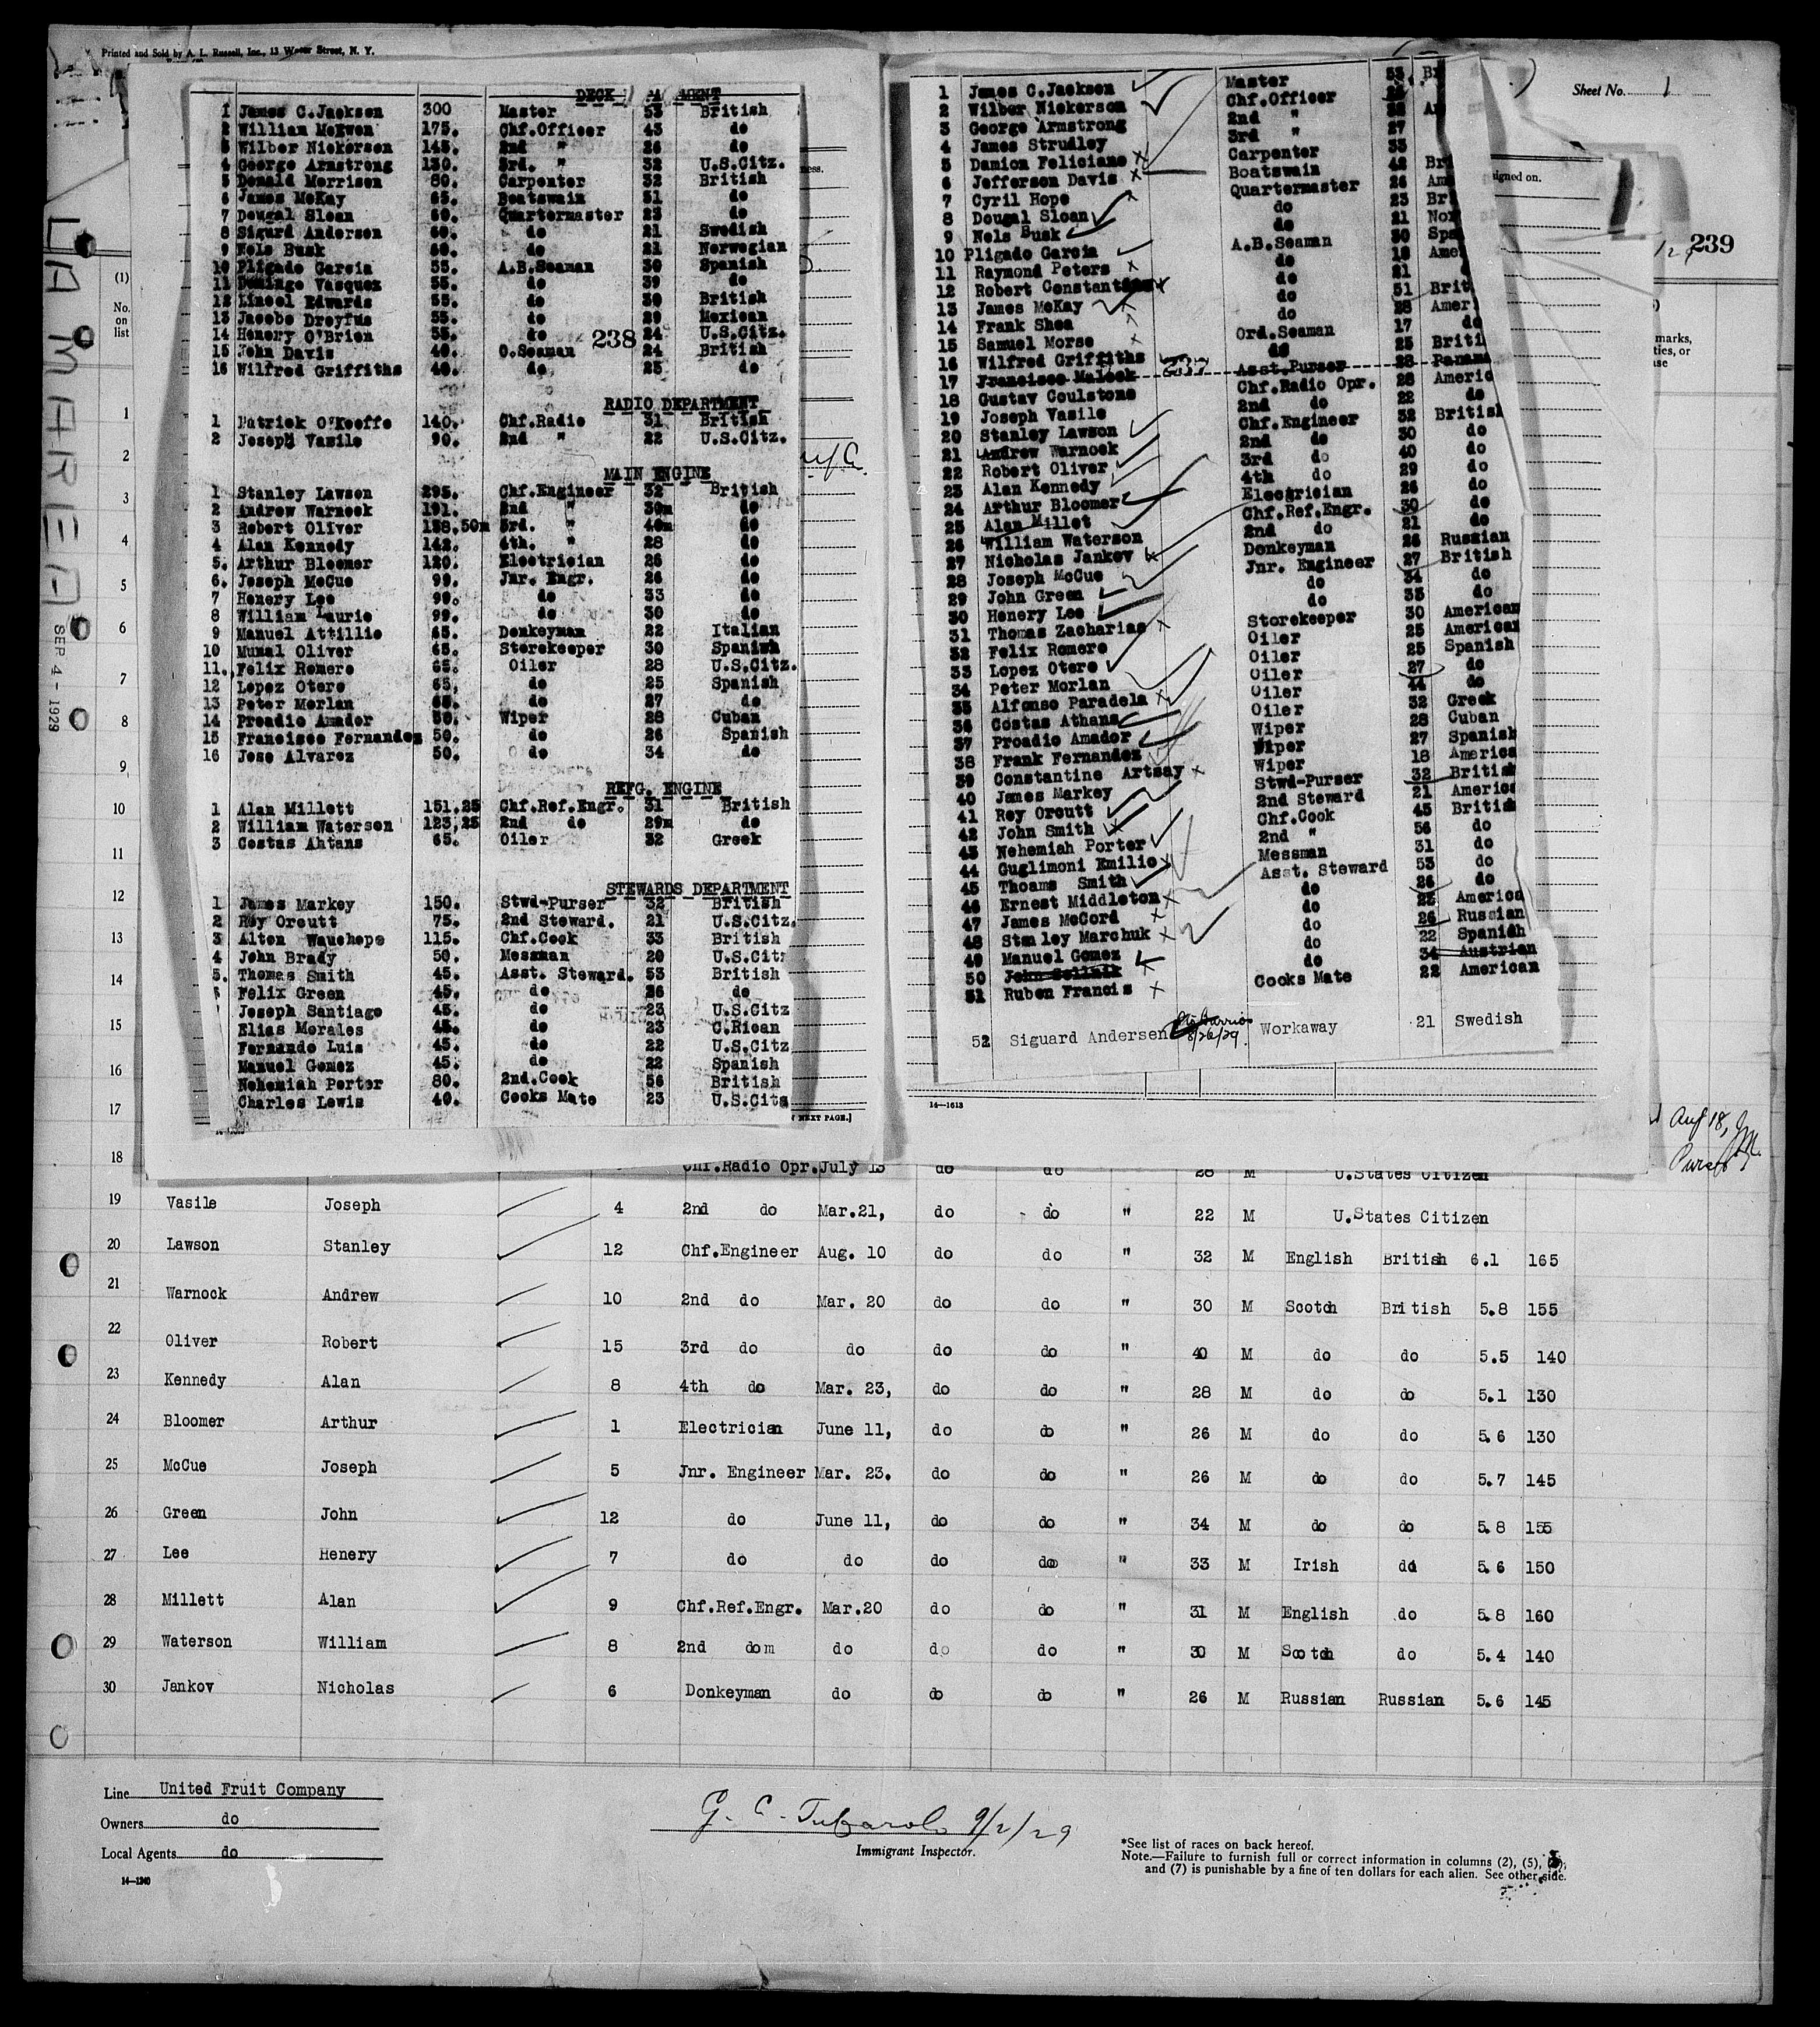 Printed and Sold by A. L. Russell, Inc., 13 Water Street, N. Y.
Sheet No. 1
239
LA MAREA
SEP 4 - 1929
(1)
No.
on
list
DECK MENT
1 James C.Jackson 300 Master 53 British
2 William McEwen 175. Chf.Officer 43 do
3 Wilber Nickerson 145. 2nd " 26 do
4 George Armstrong 130. 3rd. " 32 U.S.Citz.
5 Donald Morrison 80. Carpenter 32 British
6 James McKay 65. Boatswain 51 do
7 Dougal Sloan 60. Quartermaster 23 do
8 Sigurd Andersen 60. do 21 Swedish
9 Nels Busk 60. do 21 Norwegian
10 Pligado Garcia 55. A.B.Seaman 30 Spanish
11 Domingo Vasquez 55. do 39 do
12 Lincol Edwards 55. do 30 British
13 Jacobo Dreyfus 55. do 29 Mexican
14 Henery O'Brien 55. do 24 U.S.Citz.
238
15 John Davis 40. O.Seaman 24 British
16 Wilfred Griffiths 40. do 25 do
RADIO DEPARTMENT
1 Patrick O'Keeffe 140. Chf.Radio 31 British
2 Joseph Vasile 90. 2nd " 22 U.S.Citz.
MAIN ENGINE
1 Stanley Lawson 295. Chf.Engineer 32 British
2 Andrew Warnock 191. 2nd " 30m do
3 Robert Oliver 158.50m 3rd. " 40m do
4 Alan Kennedy 142. 4th. " 28 do
5. Arthur Bloomer 120. Electrician 26 do
6. Joseph McCue 99. Jnr. Engr. 26 do
7 Henery Lee 99. do 33 do
8 William Laurie 99. do 30 do
9 Manuel Attillio 65. Donkeyman 22 Italian
10 Munal Oliver 65. Storekeeper 30 Spanish
11. Felix Romero 65. Oiler 28 U.S.Citz.
12 Lopez Otero 65. do 25 Spanish
13 Peter Morlan 65. do 27 do
14 Proadio Amador 50. Wiper 28 Cuban
15 Francisco Fernandez 50. do 26 Spanish
16 Jose Alvarez 50. do 34 do
REFG. ENGINE
1 Alan Millett 151.25 Chf.Ref.Engr. 31 British
2 William Waterson 123,25 2nd do 29m do
3 Costas Ahtans 65. Oiler 32 Greek
STEWARDS DEPARTMENT
1 James Markey 150. Stwd-Purser 32 British
2 Roy Orcutt 75. 2nd Steward. 21 U.S.Citz.
3 Alton Wauchope 115. Chf.Cook 33 British
4 John Brady 50. Messman 20 U.S.Citz
5. Thomas Smith 45. Asst. Steward. 53 British
Felix Green 45. do 26 do
Joseph Santiago 45. do 23 U.S.Citz
Elias Morales 45. do 23 C.Rican
Fernando Luis 45. do 22 U.S.Citz
Manuel Gomez 45. do 22 Spanish
Nehemiah Porter 80. 2nd.Cook 56 British
Charles Lewis 40. Cooks Mate 23 U.S.Citz
NEXT PAGE.]
1 James C.Jackson Master 53 Br
2 Wilber Nickerson Chf.Officer
3 George Armstrong 2nd "
4 James Strudley 3rd " 27
5 Damion Feliciano Carpenter 33
6 Jefferson Davis Boatswain 42 Br
7 Cyril Hope Quartermaster 26 Am
8 Dougal Sloan do 23 Br
9 Nels Busk do 21 Nor
10 Pligado Garcia A.B.Seaman 30 Spa
11 Raymond Peters do 18 Amer
12 Robert Constantine do 21
13 James McKay do 51 Brit
14 Frank Shea do 28 Amer
15 Samuel Morse Ord.Seaman 17 do
16 Wilfred Griffiths do 25 Briti
17 Francisco Maleek 237 Asst.Purser 28 Panama
18 Gustav Coulstone Chf.Radio Opr. 28 Americ
19 Joseph Vasile 2nd do 22 do
20 Stanley Lawson Chf.Engineer 32 British
21 Andrew Warnock 2nd do 30 do
22 Robert Oliver 3rd do 40 do
23 Alan Kennedy 4th do 29 do
24 Arthur Bloomer Electrician 26 do
25 Alan Millet Chf.Ref.Engr. 30 do
26 William Waterson 2nd do 21 do
27 Nicholas Jankov Donkeyman 26 Russian
28 Joseph McCue Jnr. Engineer 27 British
29 John Green do 34 do
30 Henery Lee do 33 do
31 Thomas Zacharias Storekeeper 30 American
32 Felix Romero Oiler 25 American
33 Lopez Otero Oiler 25 Spanish
34 Peter Morlan Oiler 27 do
35 Alfonso Paradela Oiler 44 do
36 Costas Athans Oiler 32 Greek
37 Proadio Amador Wiper 28 Cuban
38 Frank Fernandez Wiper 27 Spanish
39 Constantine Artsay Wiper 18 America
40 James Markey Stwd-Purser 32 British
41 Roy Orcutt 2nd Steward 21 America
42 John Smith Chf.Cook 45 British
43 Nehemiah Porter 2nd " 56 do
44 Guglimoni Emilio Messman 31 do
45 Thoams Smith Asst. Steward 53 do
46 Ernest Middleton do 26 do
47 James McCord do 23 America
48 Stanley Marchuk do 26 Russian
49 Manuel Gomez do 22 Spanish
50 do 34 Austrian
51 Ruben Francis Cooks Mate 22 American
52 Siguard Andersen Pto Barrios 8/26/29. Workaway 21 Swedish
14—1613
Aug 18,
18 Chf.Radio Opr. July 13 do do 28 M U.States Citizen
19 Vasile Joseph 4 2nd do Mar.21, do do " 22 M U.States Citizen
20 Lawson Stanley 12 Chf.Engineer Aug. 10 do do " 32 M English British 6.1 165
21 Warnock Andrew 10 2nd do Mar. 20 do do " 30 M Scotch British 5.8 155
22 Oliver Robert 15 3rd do do do do " 40 M do do 5.5 140
23 Kennedy Alan 8 4th do Mar. 23, do do " 28 M do do 5.1 130
24 Bloomer Arthur 1 Electrician June 11, do do " 26 M do do 5.6 130
25 McCue Joseph 5 Jnr. Engineer Mar. 23. do do " 26 M do do 5.7 145
26 Green John 12 do June 11, do do " 34 M do do 5.8 155
27 Lee Henery 7 do do do do " 33 M Irish do 5.6 150
28 Millett Alan 9 Chf.Ref.Engr. Mar.20 do do " 31 M English do 5.8 160
29 Waterson William 8 2nd dom do do do " 30 M Scotch do 5.4 140
30 Jankov Nicholas 6 Donkeyman do do do " 26 M Russian Russian 5.6 145
Line United Fruit Company
Owners do
Local Agents do
14—1240
G. C. 9/2/29
Immigrant Inspector.
*See list of races on back hereof.
Note.—Failure to furnish full or correct information in columns (2), (5),
and (7) is punishable by a fine of ten dollars for each alien. See other side.